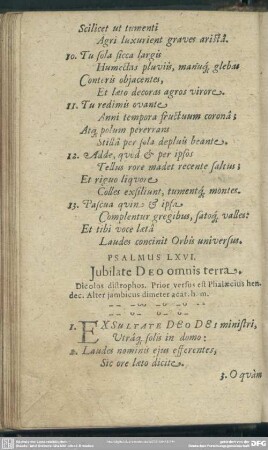 Scilicet ut tumenti
Agri luxurient graves aristâ.
10. Tu sola sicca largis
Humectas pluviis, manuq́; glebas
Conteris objacentes,
Et læto decoras agros virore.
11. Tu redimis ovante
Anni tempora fructuum coronâ;
Atq́; polum pererrans
Stillâ per sola depluis beante.
12. Adde, qvod & per ipsos
Tellus rore madet recente saltus;
Et riguo liqvore
Colles exsiliunt, tumentq́; montes.
13. Pascua qvin & ipsa
Complentur gregibus, satoq́; valles:
Et tibi voce lætâ
Laudes concinit Orbis universus.
PSALMUS LXVI.
Jubilate DEO omnis terra.
Dicolos distrophos. Prior versus est Phalæcius hen
dec. Alter jambicus dimeter acat. h. m.
1. EXSULTATE DEO DEI ministri,
Utrâq́; solis in domo:
2. Laudes nominis ejus efferentes,
Sic ore læto dicite.
3. O qvàm